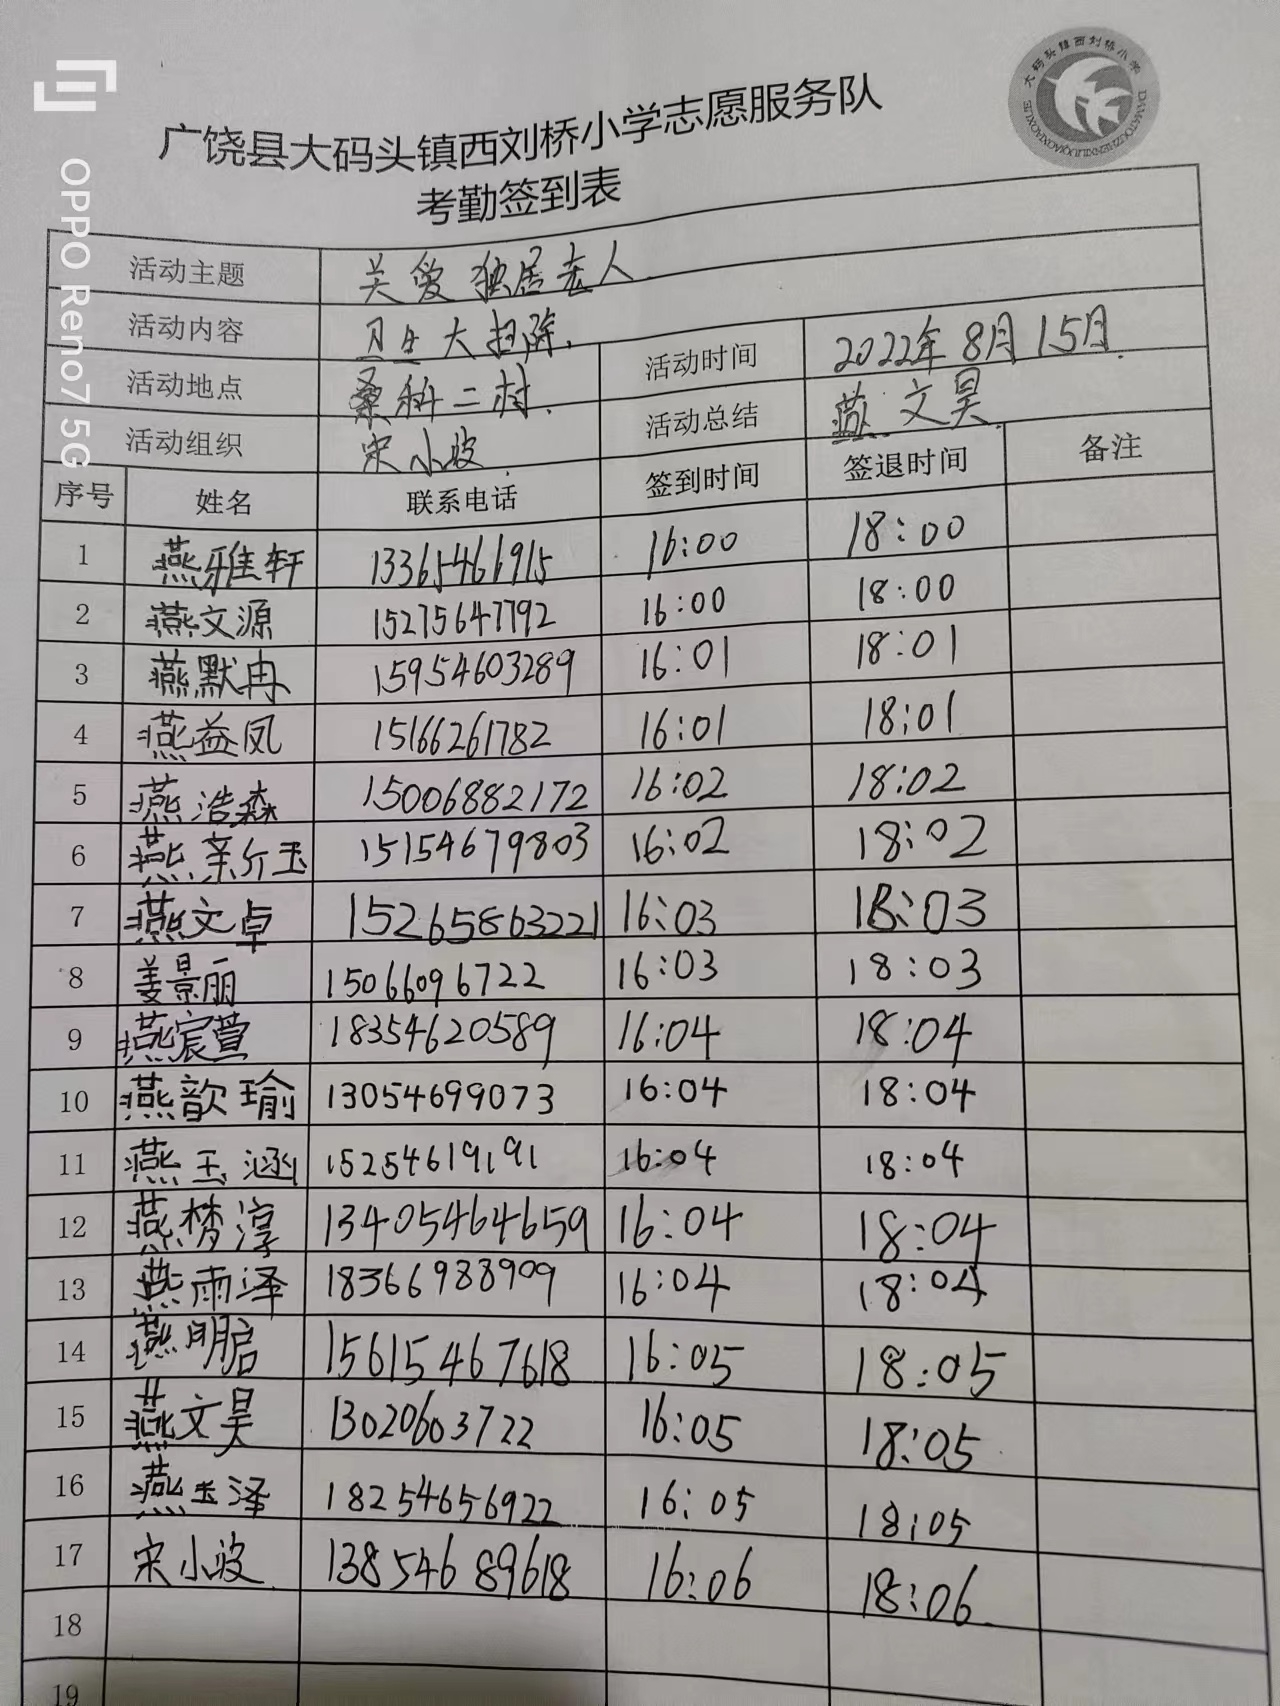 大码头镇西刘桥小学
广饶县大码头镇西刘桥小学志愿服务队
考勤签到表
OPPO Reno7 5G
活动主题 关爱独居老人
活动内容 卫生大扫除.
活动地点 桑科二村. 活动时间 2022年8月15日.
活动组织 宋小波. 活动总结 燕文昊.
序号 姓名 联系电话 签到时间 签退时间 备注
1 燕雅轩 13365466915 16:00 18:00
2 燕文源 15275647792 16:00 18:00
3 燕默冉 15954603289 16:01 18:01
4 燕益凤 15166261782 16:01 18:01
5 燕浩森 15006882172 16:02 18:02
6 燕亲亇玉 15154679803 16:02 18:02
7 燕文卓 15265863221 16:03 18:03
8 姜景丽 15066096722 16:03 18:03
9 燕宸萱 18354620589 16:04 18:04
10 燕歆瑜 13054699073 16:04 18:04
11 燕玉涵 15254619191 16:04 18:04
12 燕梦淳 13405464659 16:04 18:04
13 燕雨泽 18366988909 16:04 18:04
14 燕明启 15615467618 16:05 18:05
15 燕文昊 13020603722 16:05 18:05
16 燕玉泽 18254656922 16:05 18:05
17 宋小波 13854689618 16:06 18:06.
18
19